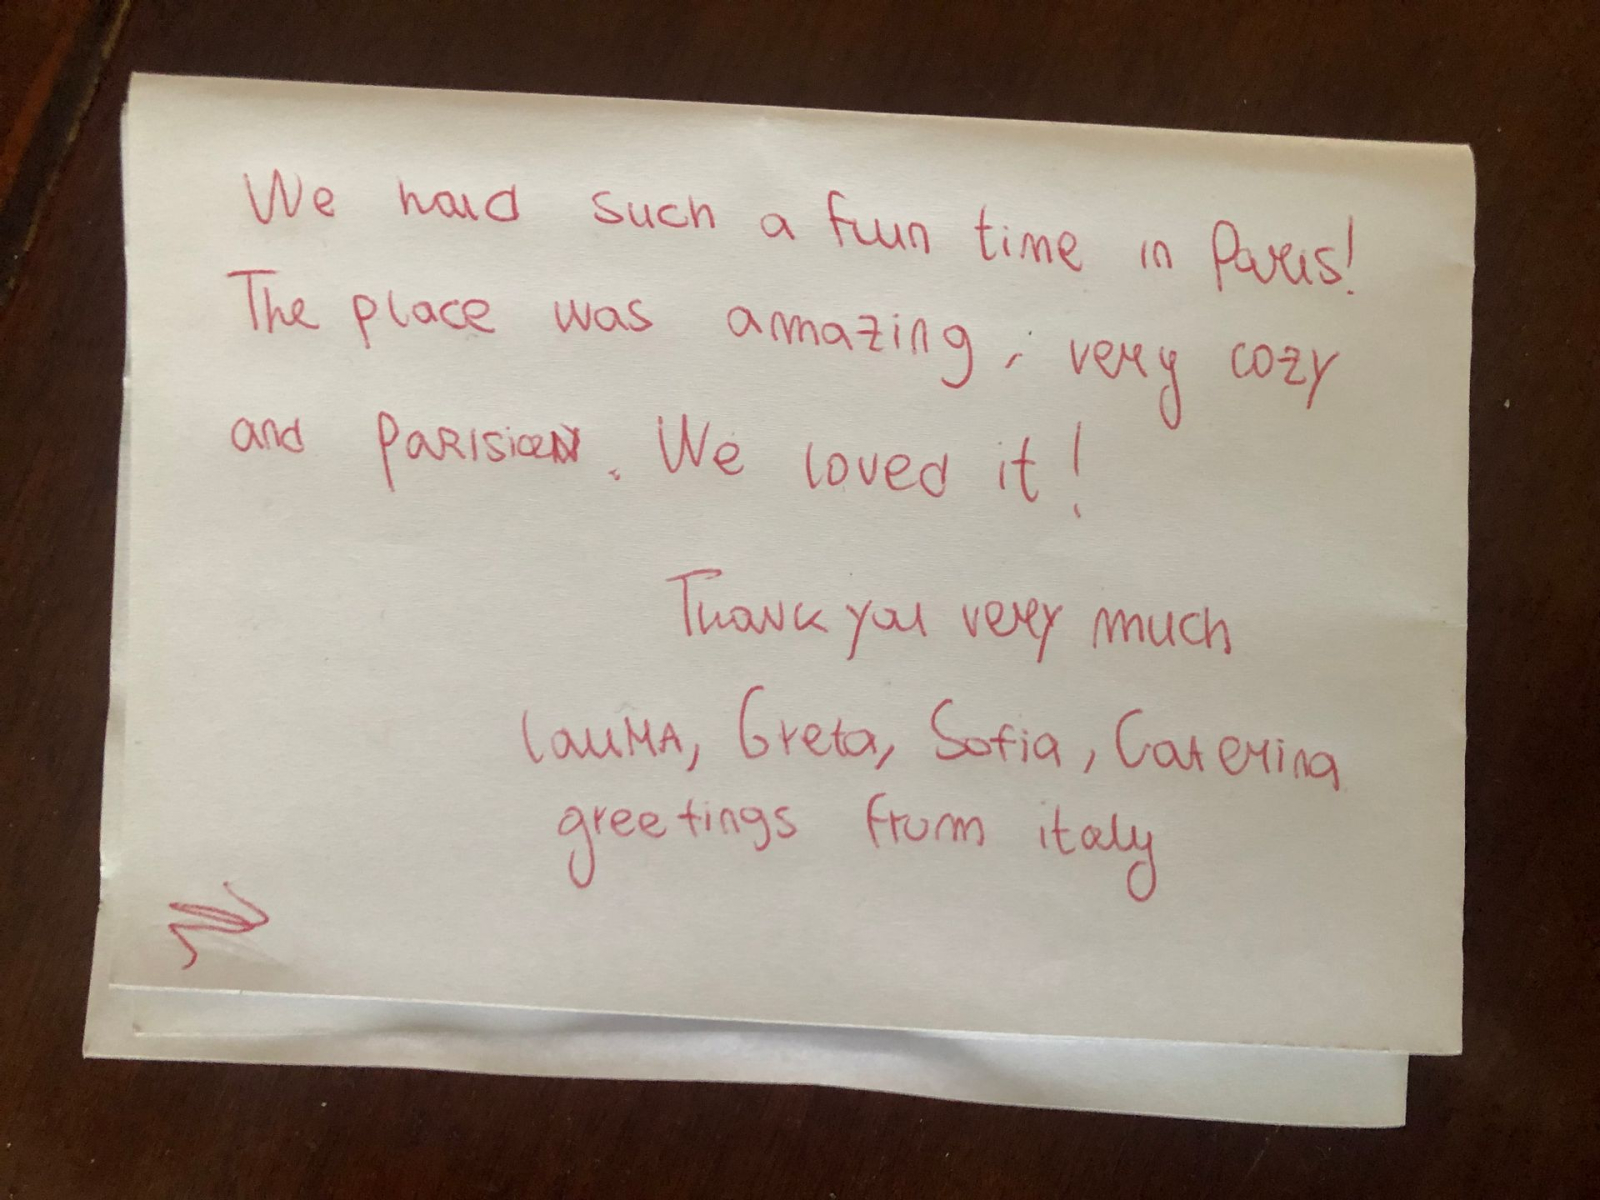 We had such a fun time in Paris!
The place was amazing, very cozy
and Parisian. We loved it!
Thank you very much
Laura, Greta, Sofia, Caterina
greetings from italy